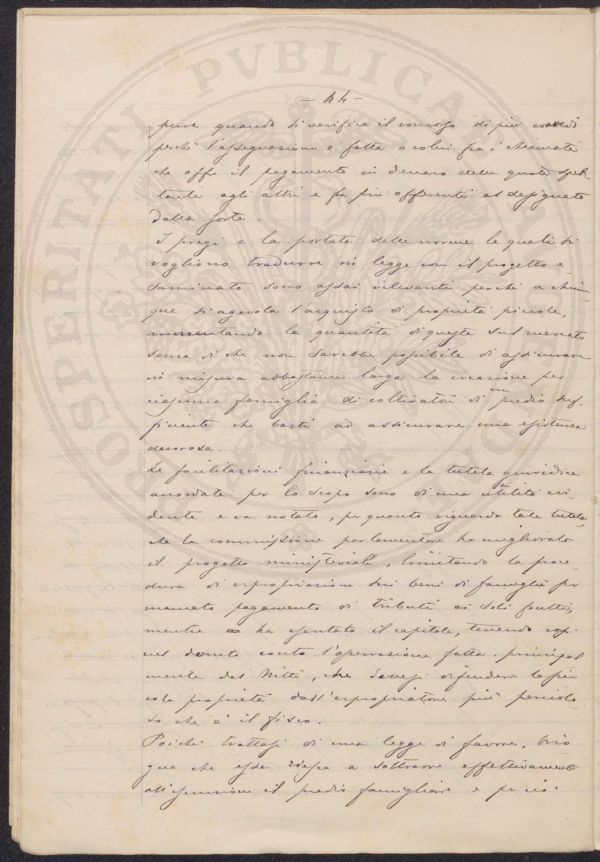 PROSPERITATI PVBLICAE
- 44 -
pure quando si verifica il concorso di più coeredi
perchè l'assegnazione è fatta a colui fra i chiamati
che offre il pagamento in denaro delle quote spet-
tante agli altri e fra più offerenti al designato
dalla sorte.
I pregi e la portata delle norme le quali si
vogliono tradurre in legge con il progetto e-
saminato sono assai rilevanti perchè a chiun-
que si agevola l'acquisto di proprietà piccole,
incrementando la quantità di queste sul mercato
senza di che non sarebbe possibile di assicurare
in misura abbastanza larga la creazione per
ciascuna famiglia di coltivatori di un predio suf-
ficiente che basti ad assicurare una esistenza
decorosa.
Le facilitazioni finanziarie e la tutela giuridica
accordate per lo scopo sono di una utilità evi-
dente e va notato, per quanto riguarda tale tutela
che la commissione parlamentare ha migliorato
il progetto ministeriale, limitando la proce-
dura di espropriazione sui beni di famiglia per
mancato pagamento di tributi ai soli frutti,
mentre ha esentato il capitale, tenendo così
nel dovuto conto l'osservazione fatta principal-
mente dal Nitti, che dovessi difendere la pic-
cola proprietà dall'espropriatore più pericolo-
so che è il fisco.
Poichè trattasi di una legge di favore, biso
gna che essa riesca a sottrarre effettivamente
all'esecuzione il predio famigliare e perciò